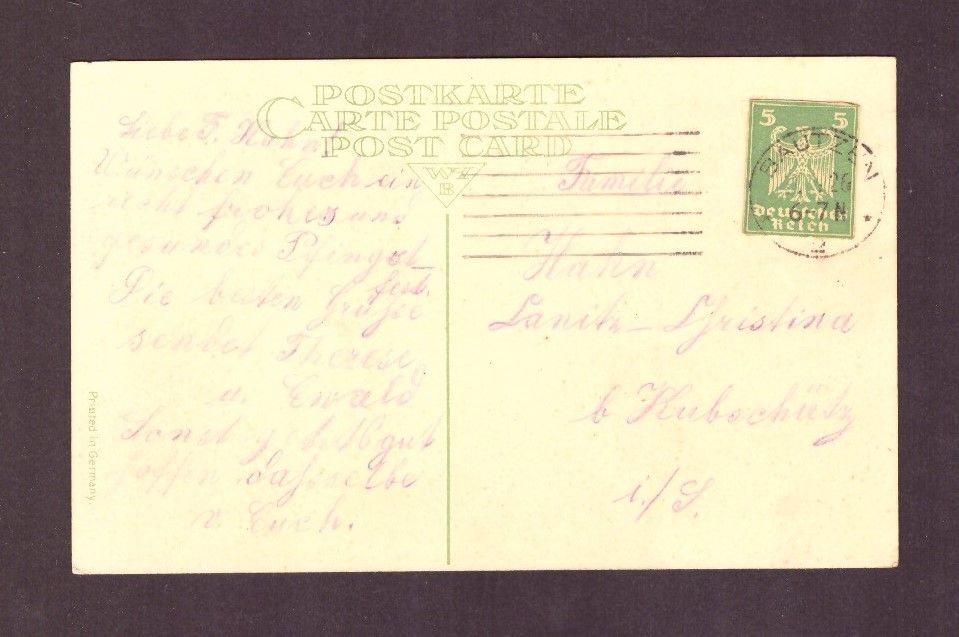 POSTKARTE
CARTE POSTALE
POST CARD
WZ
B
5 5
Deutsches
Reich
BAUTZEN
26
6-7 N
2
Liebe F. Hahn
Wünschen Euch ein
recht frohes und
gesundes Pfingst
fest.
Die besten Grüße
sendet Therese
u. Ewald
Sonst geht's gut
hoffen dasselbe
v. Euch.
Familie
Hahn
Lanitz - Christina
b Kubschütz
i/S.
Printed in Germany.